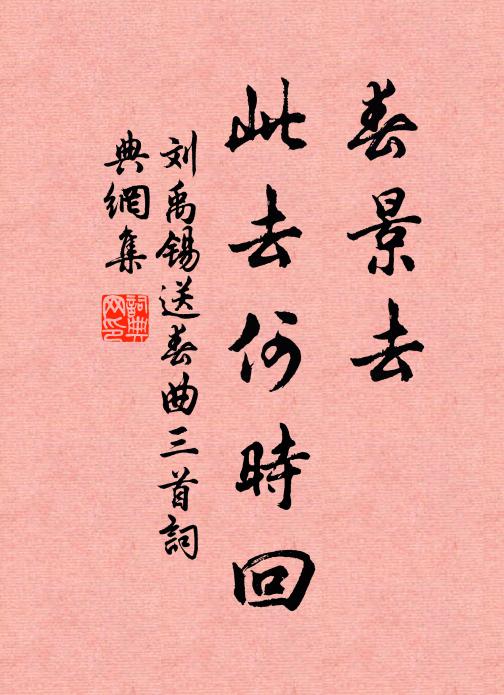 春景去
此去何時回
刘禹锡送春曲三首詞
典網集
詞典网印